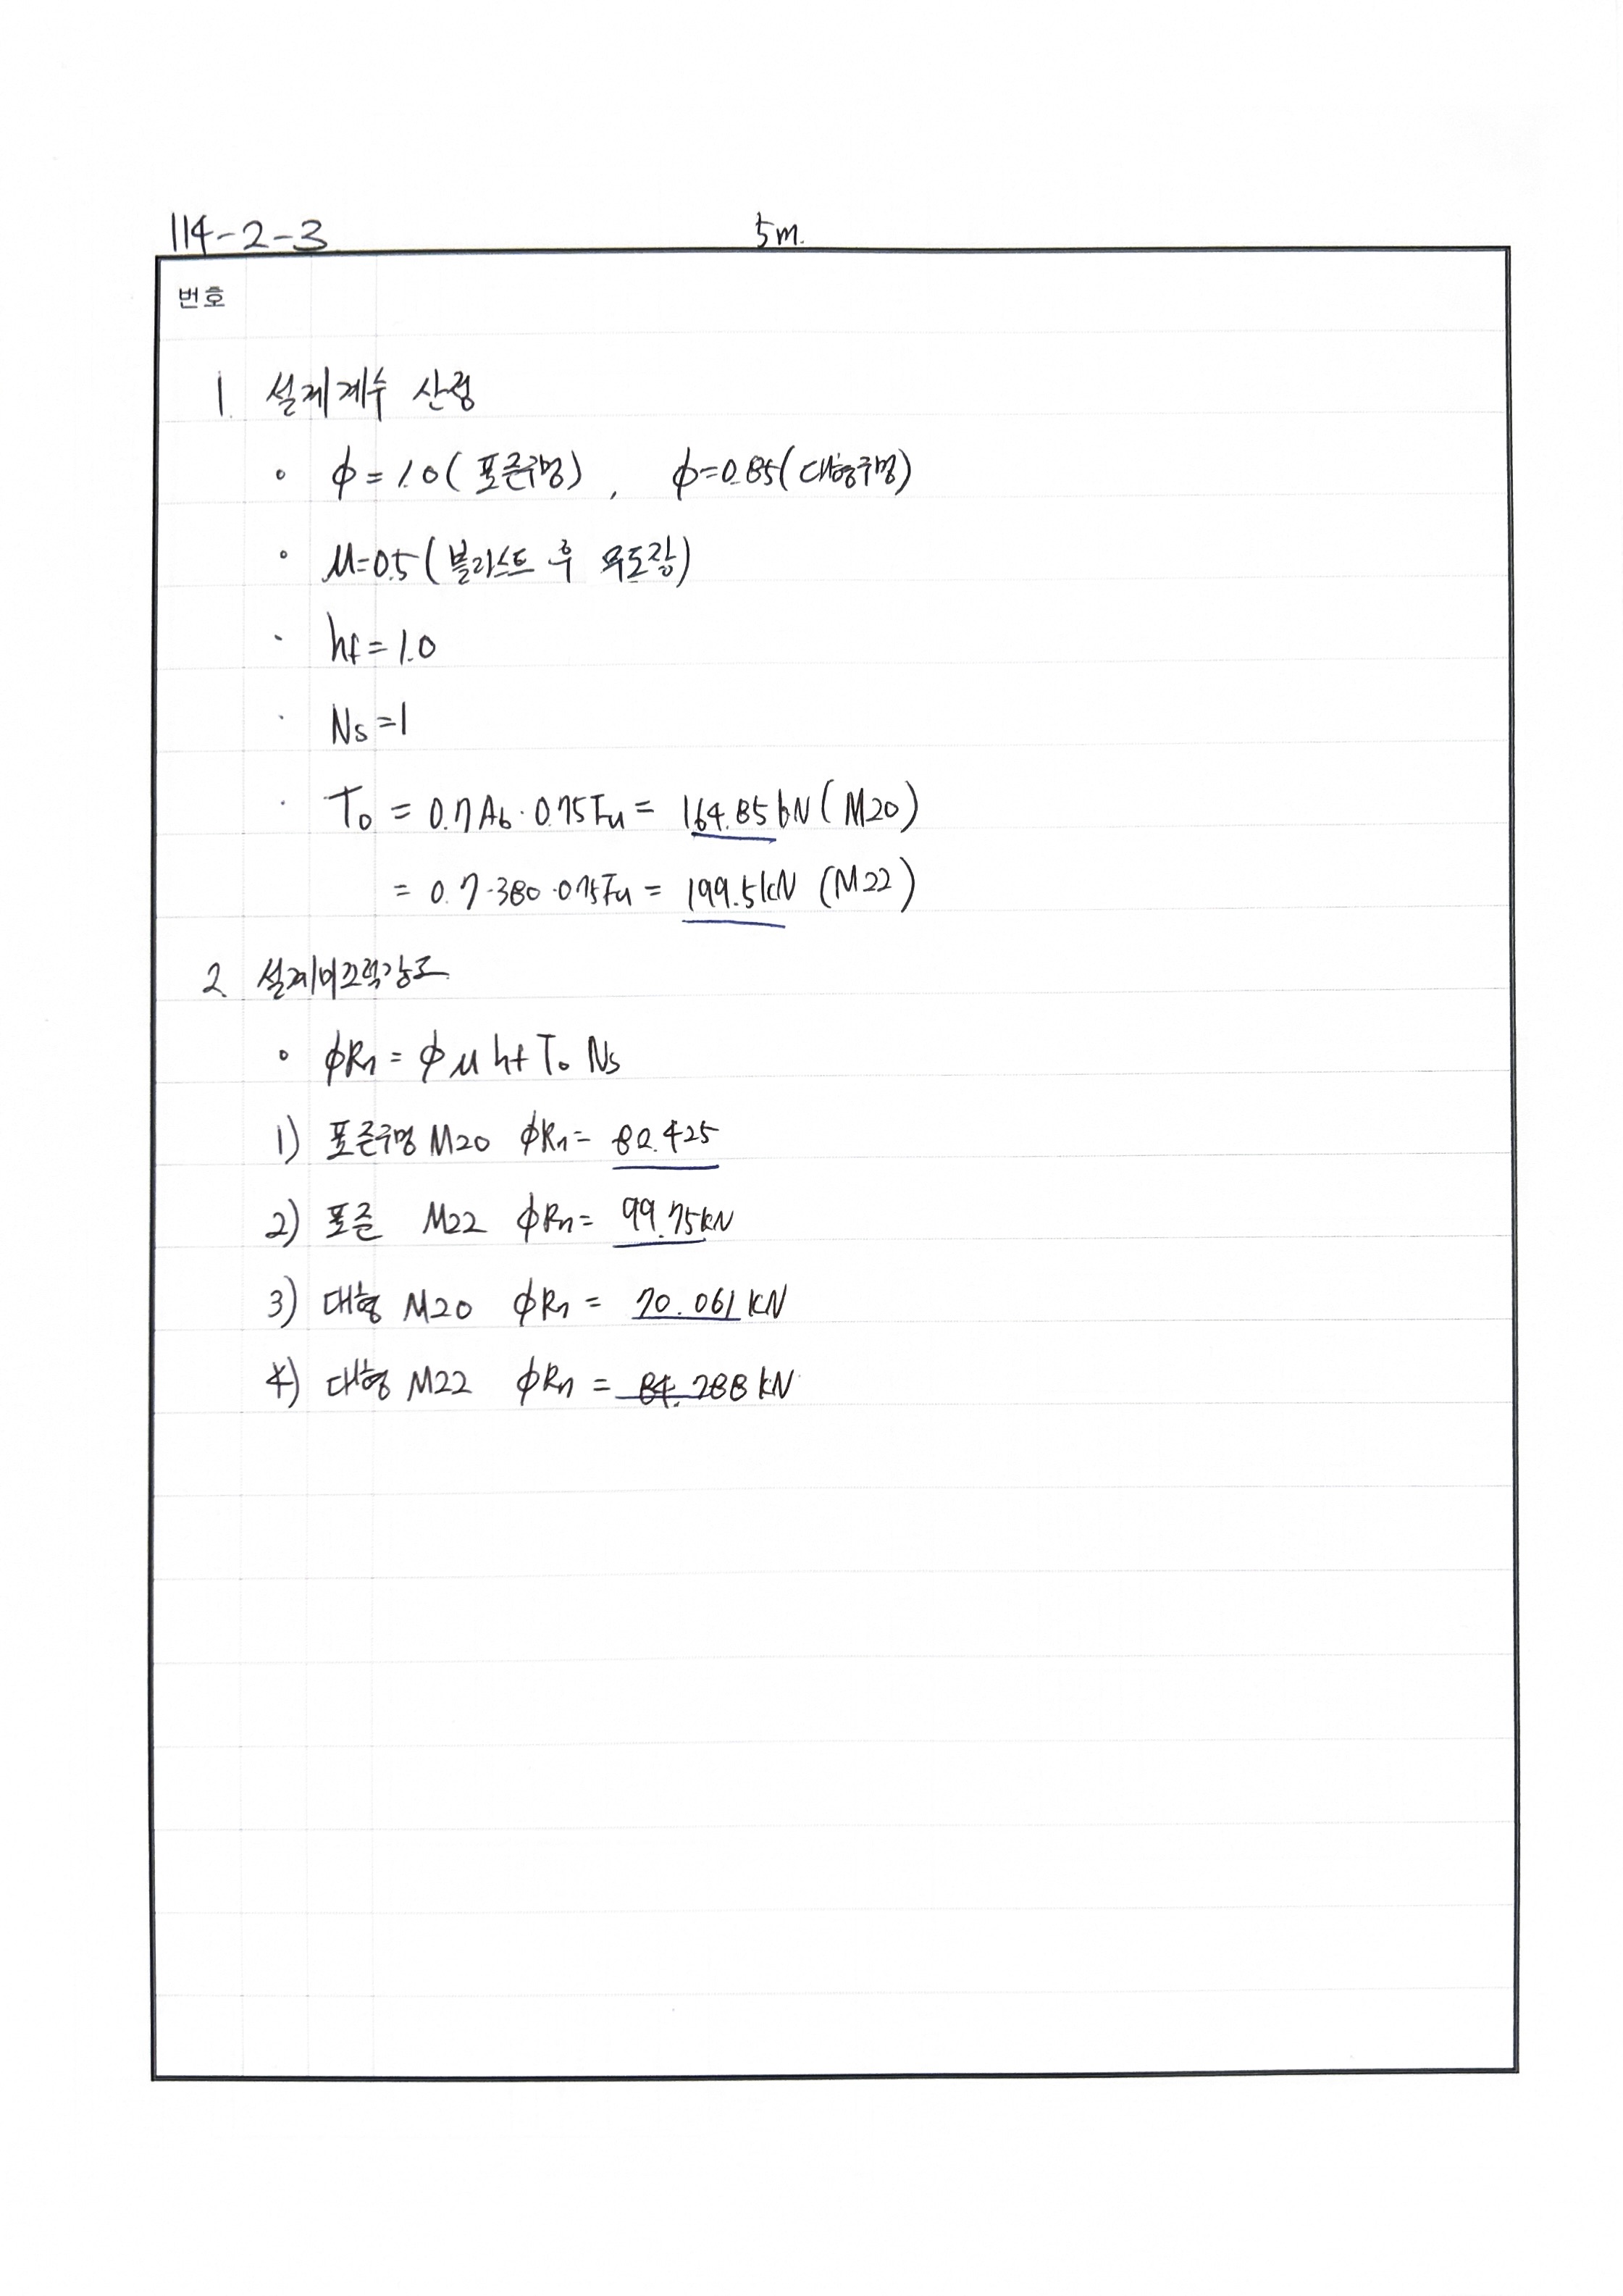 114-2-3 5m.
번호
1. 설계계수 산정
∘ ϕ = 1.0 ( 표준구멍 ) , ϕ=0.85 ( 대형구멍 )
∘ μ=0.5 ( 블라스트 후 무도장 )
· hf = 1.0
· Ns =1
· To = 0.7 Ab · 0.75 Fu = 164.85 kN ( M20 )
= 0.7 · 380 · 0.75 Fu = 199.5 kN ( M22 )
2. 설계미끄럼강도
∘ ϕRn = ϕ μ hf To Ns
1) 표준구멍 M20 ϕRn = 82.425
2) 표준 M22 ϕRn = 99.75 kN
3) 대형 M20 ϕRn = 70.061 KN
4) 대형 M22 ϕRn = 84.788 kN